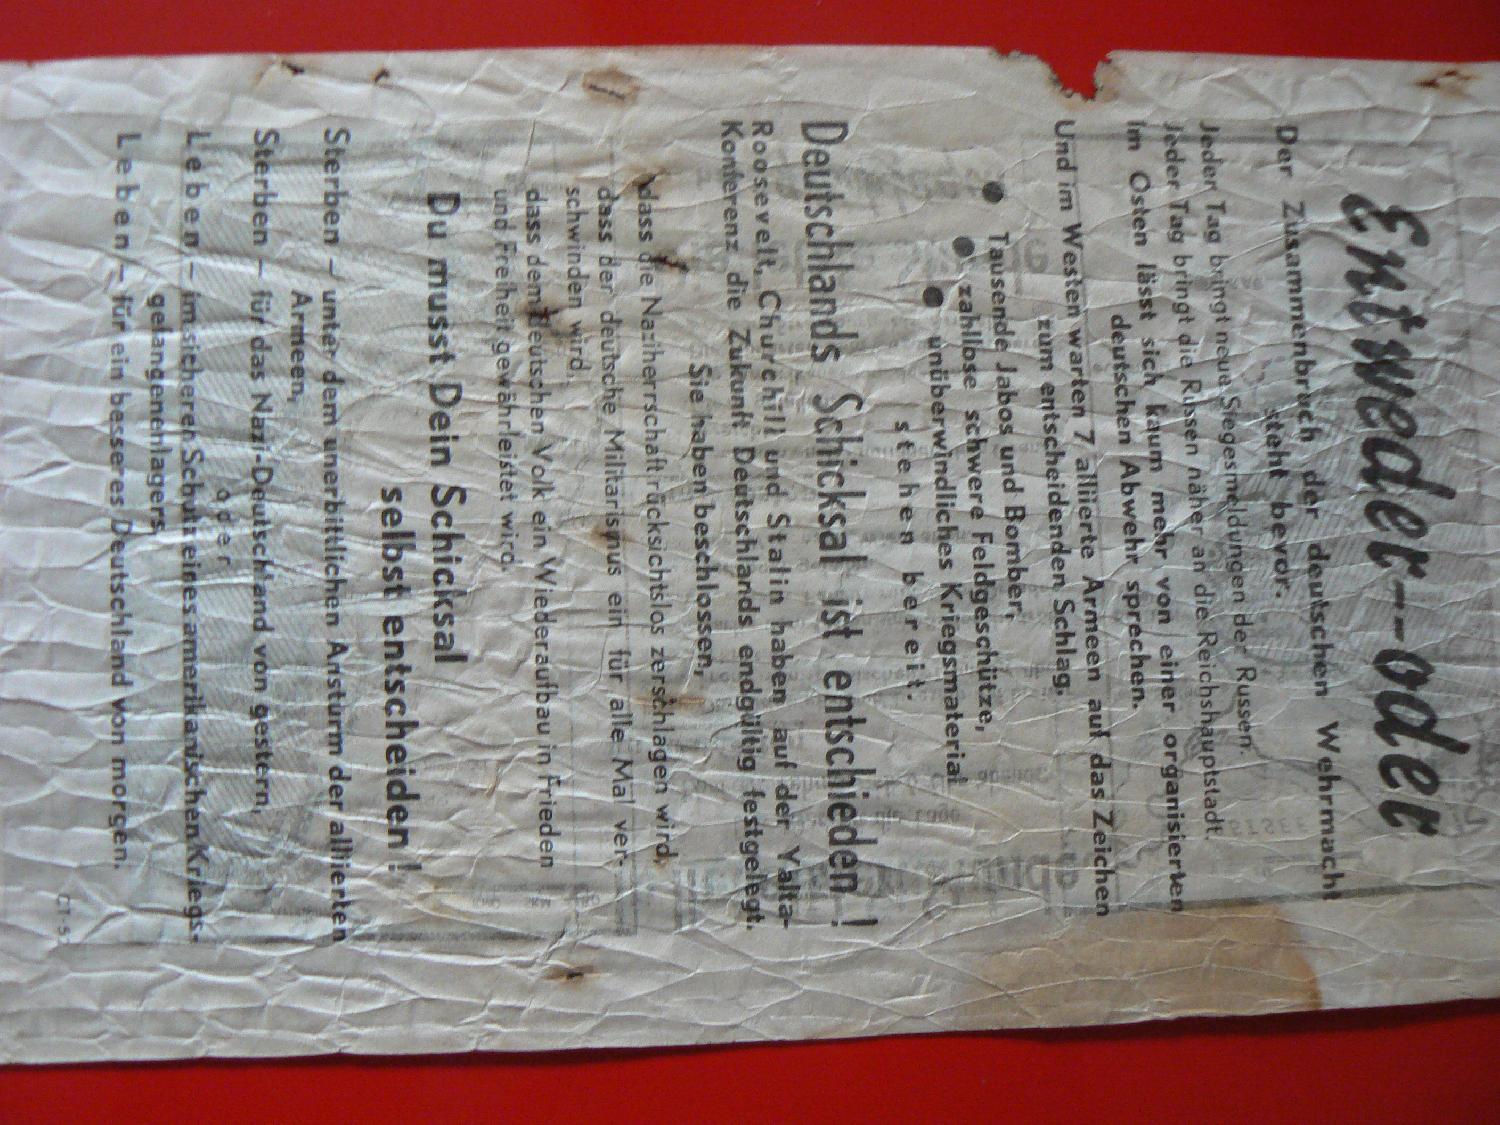 Entweder--oder
Der Zusammenbruch der deutschen Wehrmacht
steht bevor.
Jeden Tag bringt neue Siegesmeldungen der Russen.
Jeder Tag bringt die Russen näher an die Reichshauptstadt.
Im Osten lässt sich kaum mehr von einer organisierten
deutschen Abwehr sprechen.
Und im Westen warten 7 alliierte Armeen auf das Zeichen
zum entscheidenden Schlag.
● Tausende Jabos und Bomber,
● zahllose schwere Feldgeschütze,
● unüberwindliches Kriegsmaterial
stehen bereit.
Deutschlands Schicksal ist entschieden!
Roosevelt, Churchill und Stalin haben auf der Yalta-
Konferenz die Zukunft Deutschlands endgültig festgelegt.
Sie haben beschlossen,
dass die Naziherrschaft rücksichtslos zerschlagen wird,
dass der deutsche Militarismus ein für alle Mal ver-
schwinden wird,
dass dem deutschen Volk ein Wiederaufbau in Frieden
und Freiheit gewährleistet wird.
Du musst Dein Schicksal
selbst entscheiden!
Sterben – unter dem unerbittlichen Ansturm der alliierten
Armeen,
Sterben – für das Nazi-Deutschland von gestern,
oder
Leben – im sicheren Schutz eines amerikanischen Kriegs-
gefangenenlagers,
Leben – für ein besseres Deutschland von morgen.